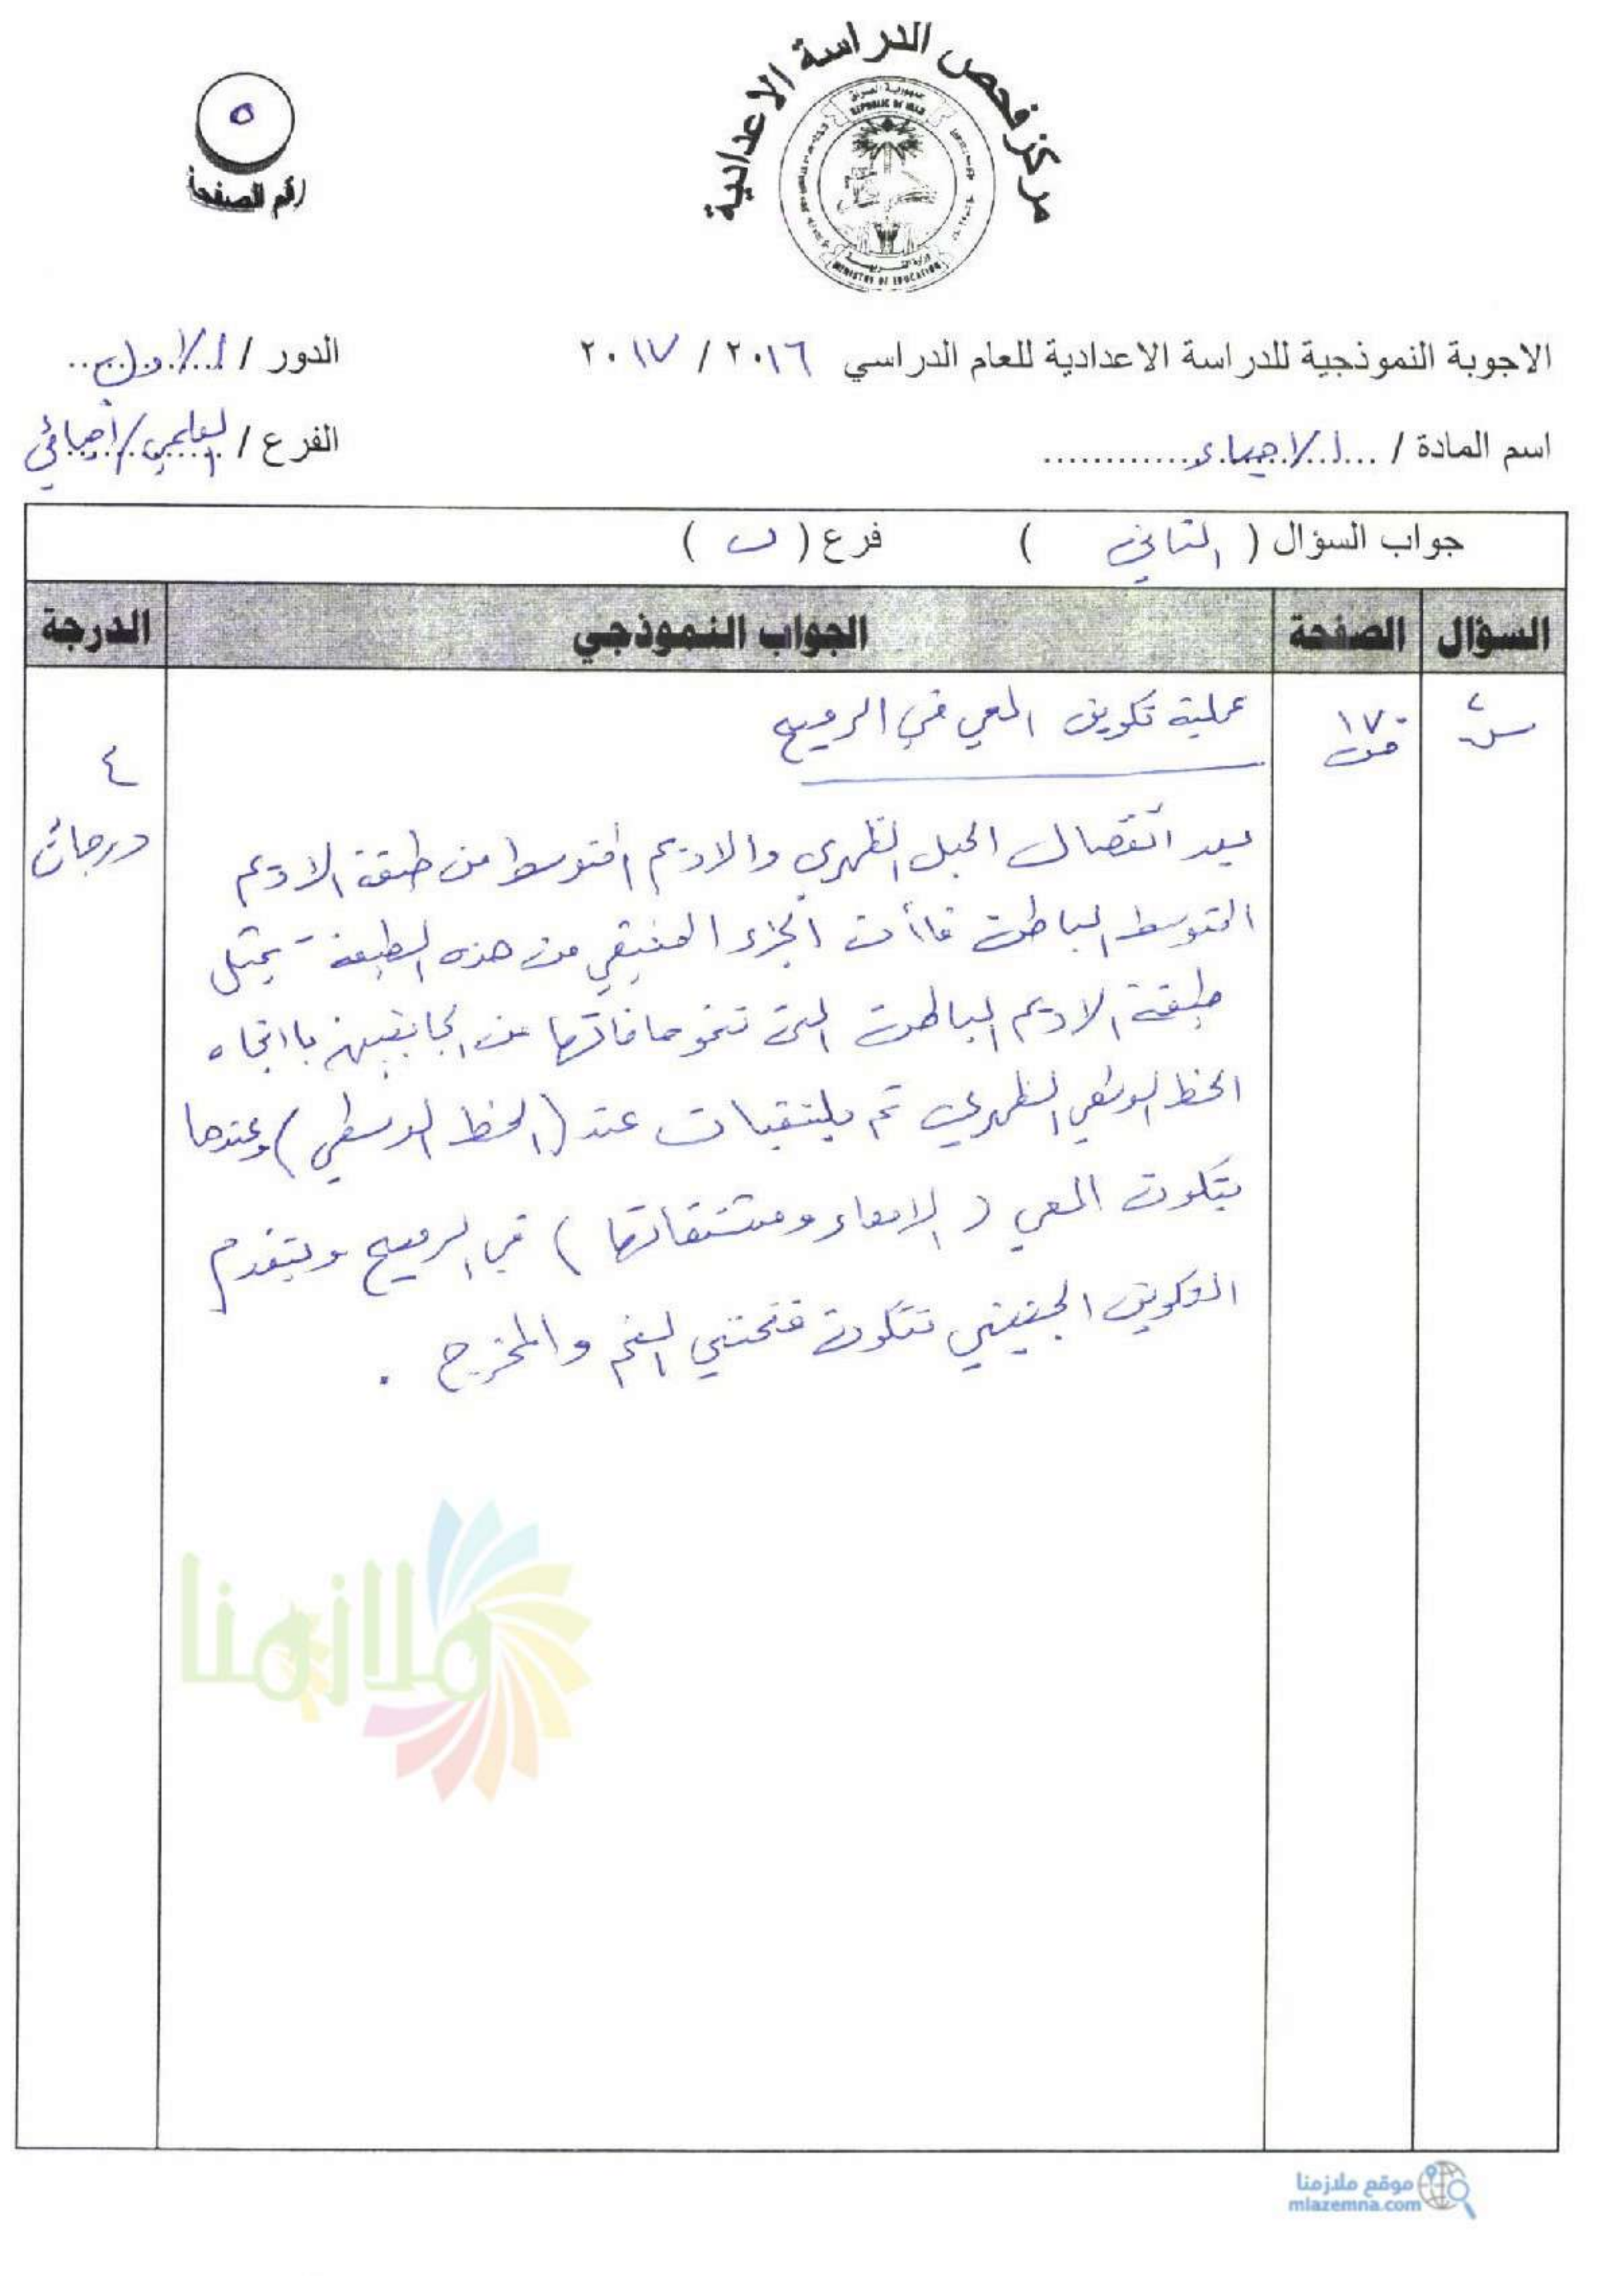 مركز فحص الدراسة الاعدادية
جمهورية العراق
REPUBLIC OF IRAQ
MINISTRY OF EDUCATION
٥
رقم الصفحة
الاجوبة النموذجية للدراسة الاعدادية للعام الدراسي ٢٠١٦ / ٢٠١٧
الدور / الاول
اسم المادة / الاحياء
الفرع / العلمي / احيائي
جواب السؤال ( الثاني ) فرع ( ب )
السؤال الصفحة الجواب النموذجي الدرجة
عملية تكوين المعي في الرميح
١٧٠
٤
درجات
بعد انفصال الحبل الظهري والاديم المتوسط من طبقة الاديم
المتوسط الباطن فأن الجزء المتبقي من هذه الطبقة يمثل
طبقة الاديم الباطن التي تنمو حافاتها من الجانبين باتجاه
الخط الوسطي الظهري ثم يلتقيان عند (الخط الوسطي) وعندها
يتكون المعي ( الامعاء ومشتقاتها ) في الرميح وبتقدم
التكوين الجنيني تتكون فتحتي الفم والمخرج .
ملازمنا
موقع ملازمنا
mlazemna.com